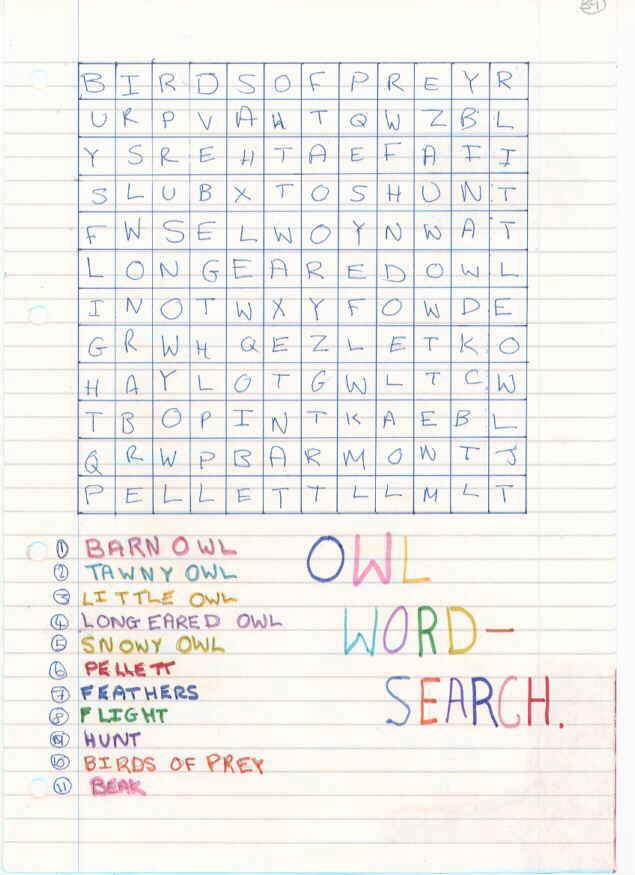 B I R D S O F P R E Y R
U R P V A H T Q W Z B L
Y S R E H T A E F A I I
S L U B X T O S H U N T
F W S E L W O Y N W A T
L O N G E A R E D O W L
I N O T W X Y F O W D E
G R W H Q E Z L E T K O
H A Y L O T G W L T C W
T B O P I N T K A E B L
Q R W P B A R M O N T J
P E L L E T T L L M L T
① BARN OWL
② TAWNY OWL
③ LITTLE OWL
④ LONG EARED OWL
⑤ SNOWY OWL
⑥ PELLETT
⑦ FEATHERS
⑧ FLIGHT
⑨ HUNT
⑩ BIRDS OF PREY
⑪ BEAK
OWL
WORD-
SEARCH.